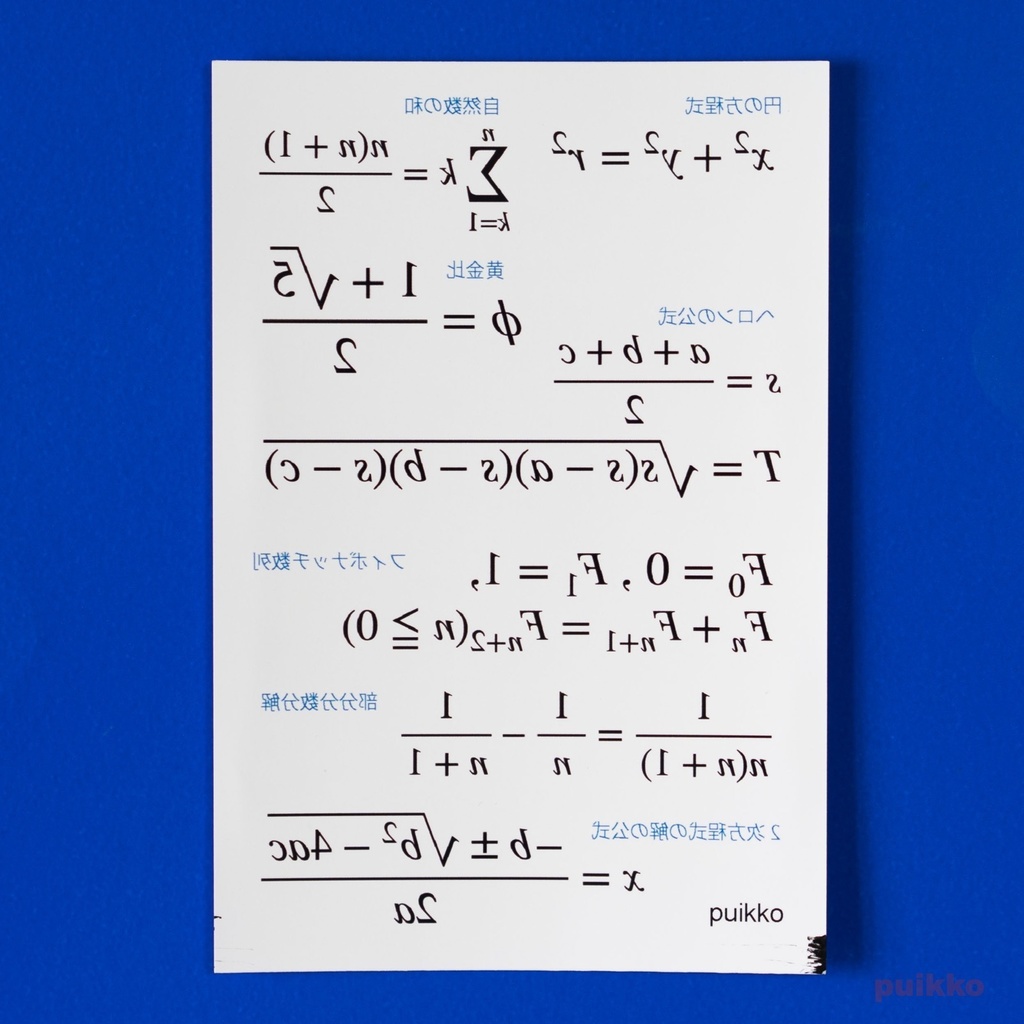 円の方程式
x² + y² = r²
自然数の和
n
∑ k = n(n + 1) / 2
k=1
黄金比
ϕ = (1 + √5) / 2
ヘロンの公式
s = (a + b + c) / 2
T = √(s(s − a)(s − b)(s − c))
フィボナッチ数列
F₀ = 0 , F₁ = 1,
Fₙ + Fₙ₊₁ = Fₙ₊₂(n ≧ 0)
部分分数分解
1 / n(n + 1) = 1 / n − 1 / n + 1
2次方程式の解の公式
x = (−b ± √(b² − 4ac)) / 2a
puikko
puikko